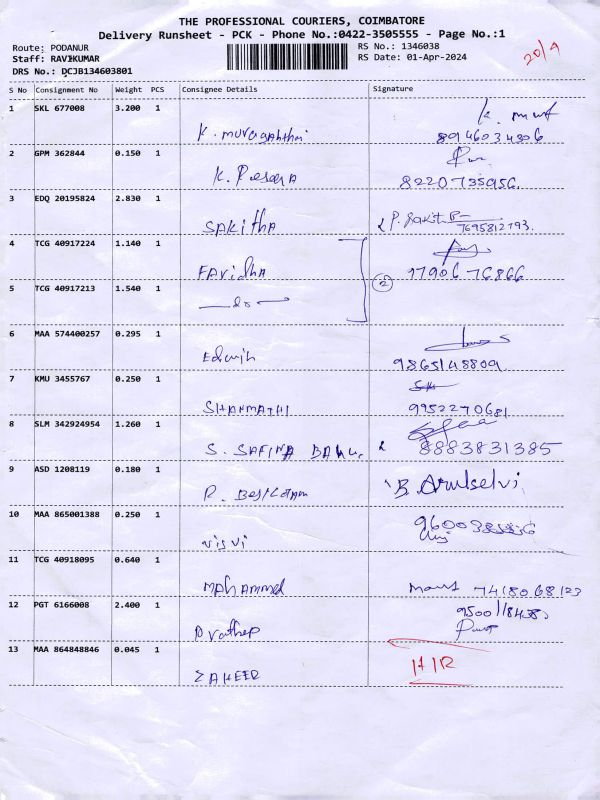 THE PROFESSIONAL COURIERS, COIMBATORE
Delivery Runsheet - PCK - Phone No.:0422-3505555 - Page No.:1
Route: PODANUR
RS No.: 1346038
20/9
Staff: RAVIKUMAR
RS Date: 01-Apr-2024
DRS No.: DCJB134603801
S No Consignment No Weight PCS Consignee Details Signature
1 SKL 677008 3.200 1
K. 8946034306
2 GPM 362844 0.150 1
K. 8220735956.
3 EDQ 20195824 2.830 1
SAKITHA 7695812793.
4 TCG 40917224 1.140 1
FAridha 2 9790676866
5 TCG 40917213 1.540 1
do
6 MAA 574400257 0.295 1
Edwin 9865148809
7 KMU 3455767 0.250 1
SHANMATHI 9952270681
8 SLM 342924954 1.260 1
S. SAFINA BANU. 8883831385
9 ASD 1208119 0.180 1
R. B. Arulselvi
10 MAA 865001388 0.250 1
visvi
11 TCG 40918095 0.640 1
Mahammed 7418068123
12 PGT 6166008 2.400 1
Prathep
13 MAA 864848846 0.045 1
ZAHEER